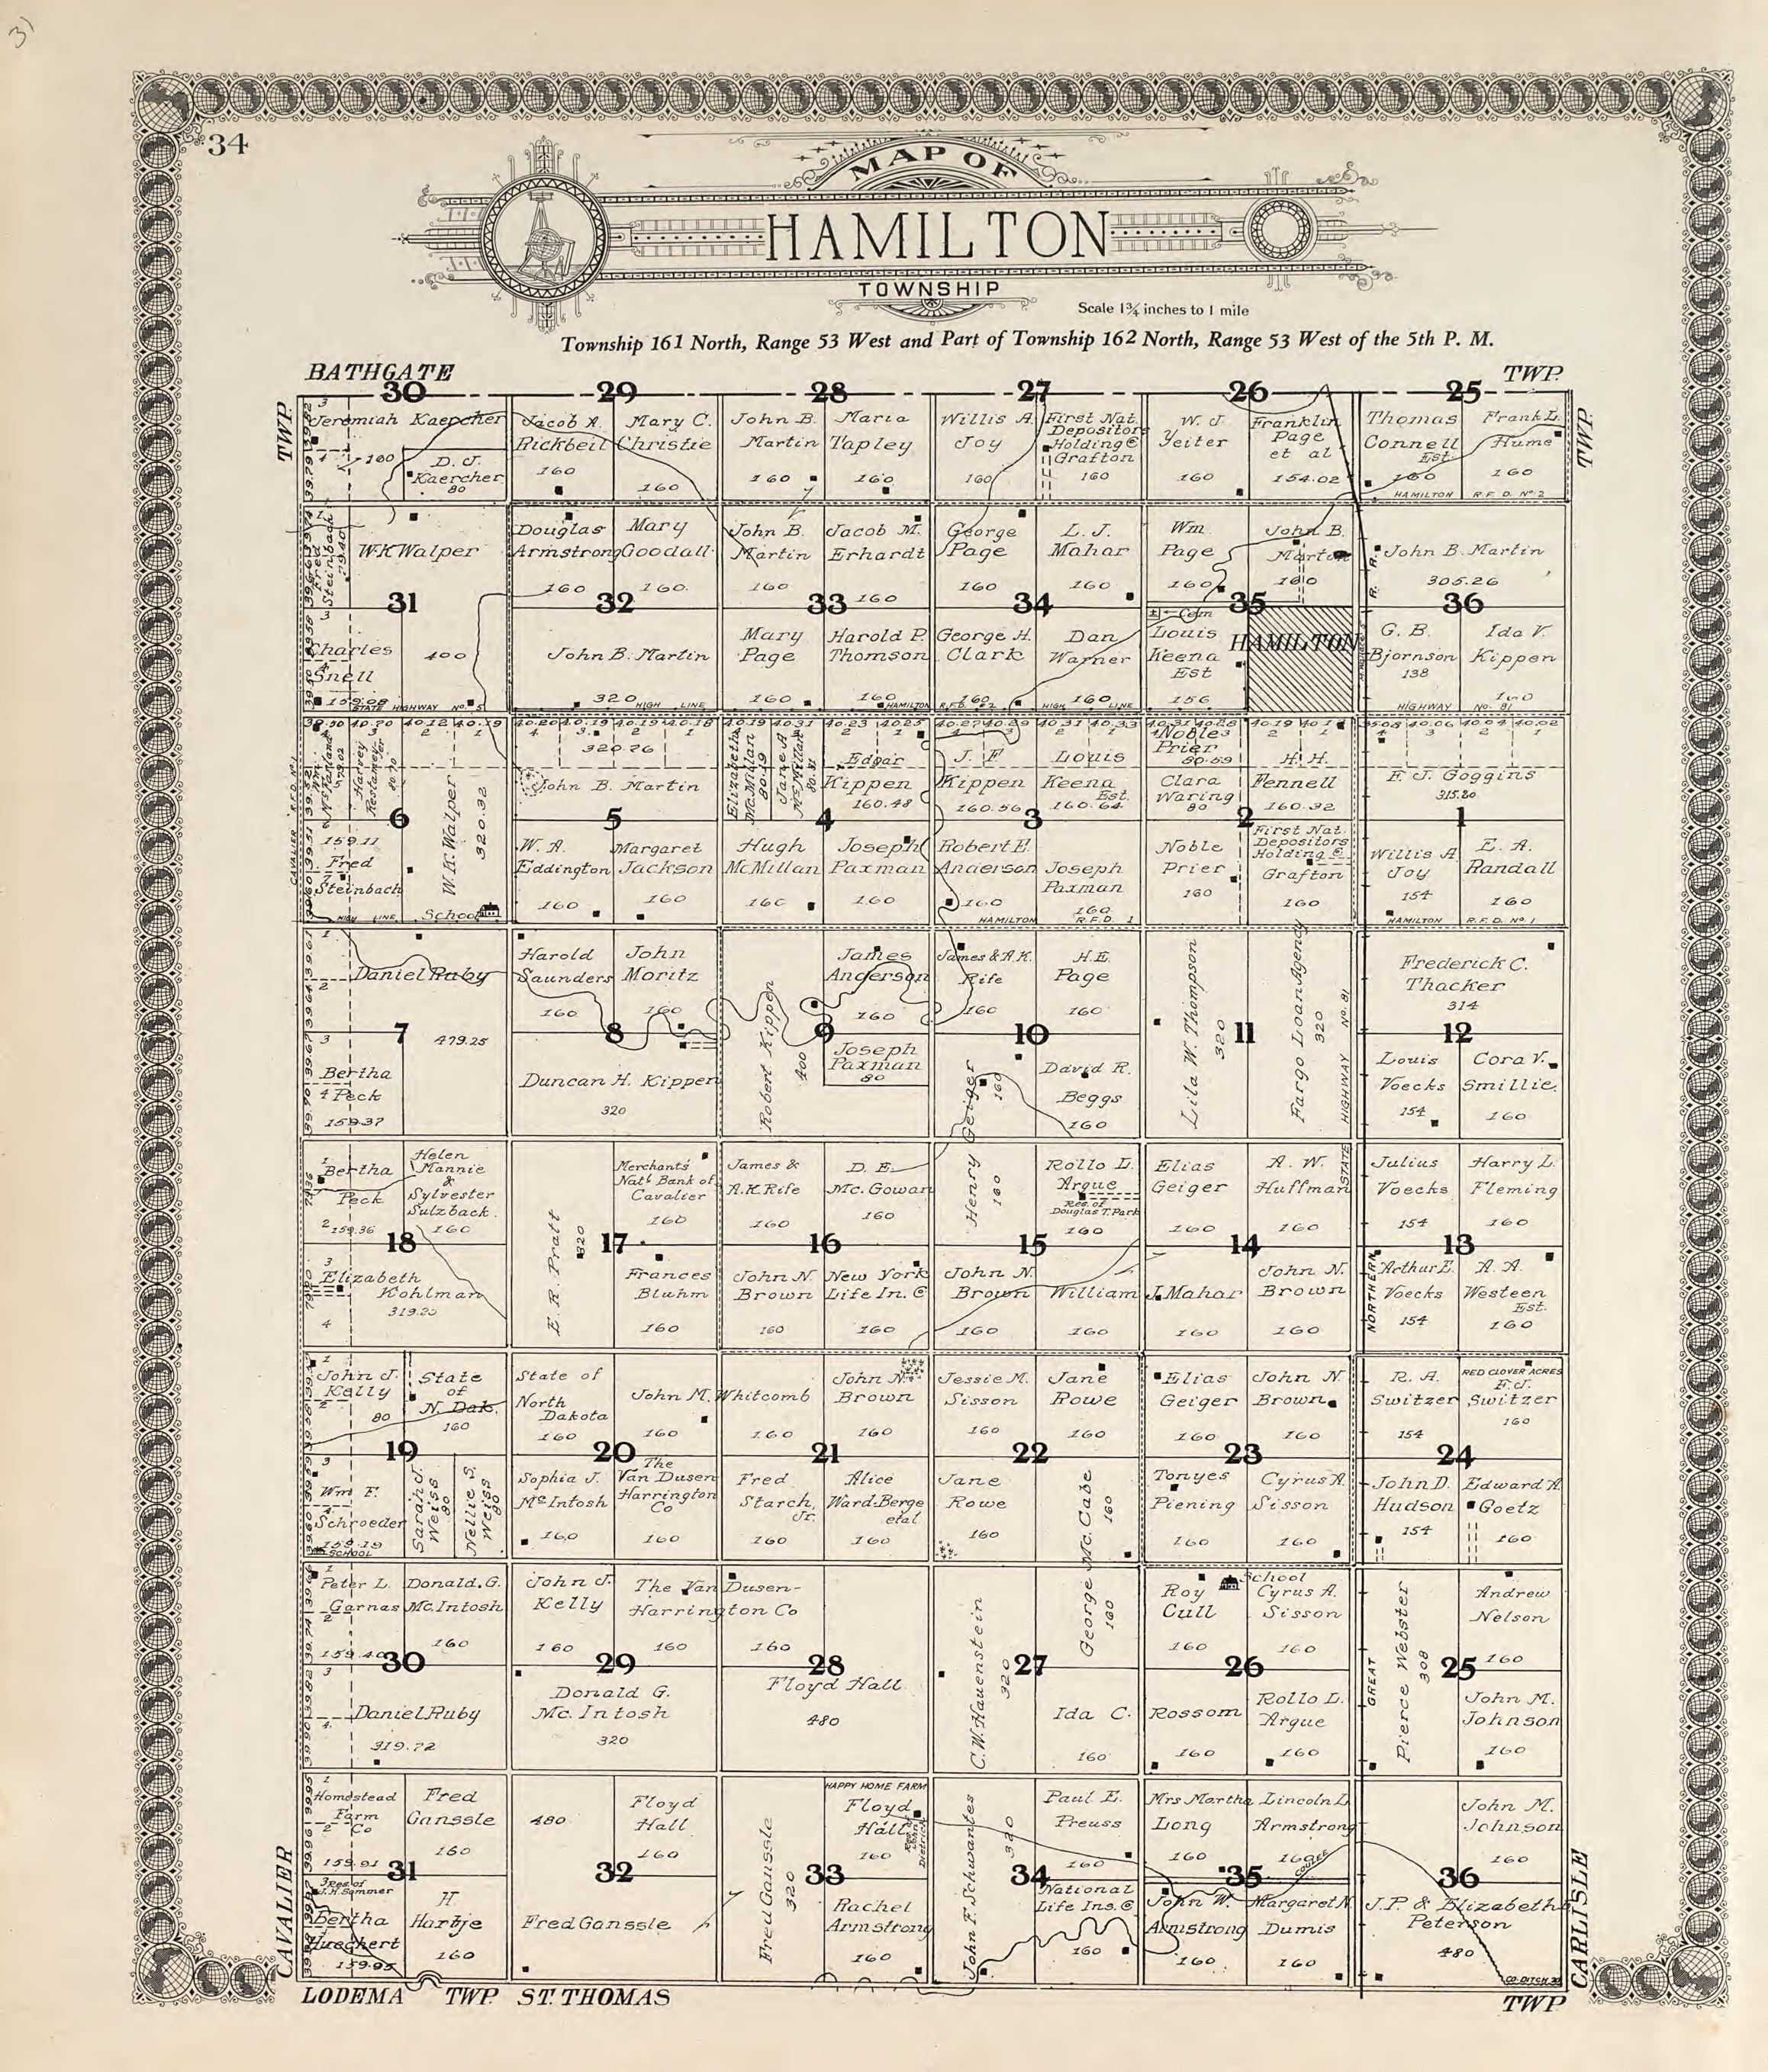 3)
34
MAP OF
HAMILTON
TOWNSHIP
Scale 1¾ inches to 1 mile
Township 161 North, Range 53 West and Part of Township 162 North, Range 53 West of the 5th P. M.
BATHGATE
TWP.
TWP.
TWP.
30
29
28
27
26
25
Jeremiah Kaercher
160
D. J.
Kaercher
80
Jacob A.
Rickbeil
160
Mary C.
Christie
160
John B.
Martin
160
Maria
Tapley
160
Willis A.
Joy
160
First Nat.
Depositors
Holding Co
Grafton
160
W. J.
Yeiter
160
Franklin
Page
et al
154.02
Thomas
Connell
Est.
160
Frank L.
Hume
160
HAMILTON R.F.D. No 2
Fred
Steinbach
79.40
W.K Walper
400
31
Charles
Snell
159.08
STATE HIGHWAY No. 5
Douglas
Armstrong
160
Mary
Goodall
160
32
John B. Martin
320
HIGH LINE
John B.
Martin
160
Jacob M.
Erhardt
160
33
Mary
Page
160
Harold P.
Thomson
160
HAMILTON R.F.D. #2
George
Page
160
L. J.
Mahar
160
34
George H.
Clark
160
Dan
Warner
160
HIGH LINE
Wm
Page
160
John B.
Martin
160
35
Cem
Louis
Keena
Est
156
HAMILTON
R. R.
John B. Martin
305.26
36
G. B.
Bjornson
138
Ida V.
Kippen
160
HIGHWAY No. 81
38.50 40.70 40.12 40.19
Wm.
McFarland
79.02
Harvey
Restemeyer
80.70
W. K. Walper
320.32
6
159.11
Fred
Steinbach
HIGH LINE
School
CAVALIER R.F.D. No 1
40.20 40.19 40.19 40.18
320.76
John B. Martin
5
W. A.
Eddington
160
Margaret
Jackson
160
40.19 40.31 40.23 40.25
Elizabeth
McMillan
80.19
Jane A
McMillan
80.31
Edgar
Kippen
160.48
4
Hugh
McMillan
160
Joseph
Paxman
160
40.27 40.29 40.31 40.33
J. F
Kippen
160.56
Louis
Keena
Est.
160.64
3
Robert E.
Anderson
160
Joseph
Paxman
160
HAMILTON R.F.D. 1
40.31 40.28 40.19 40.14
Noble
Prier
80.59
Clara
Waring
80
H. H.
Fennell
160.32
2
Noble
Prier
160
First Nat.
Depositors
Holding Co
Grafton
160
35.08 40.06 40.04 40.02
F. J. Goggins
315.20
1
Willis A.
Joy
154
E. A.
Randall
160
HAMILTON R.F.D. No 1
Daniel Ruby
479.25
7
Bertha
Peck
159.37
Harold
Saunders
160
John
Moritz
160
8
Duncan H. Kippen
320
Robert Kippen
400
James
Anderson
160
9
Joseph
Paxman
80
James & A.K.
Rife
160
H.E.
Page
160
10
Henry Geiger
160
160
David R.
Beggs
160
Lila W. Thompson
320
11
Fargo Loan Agency
320
STATE HIGHWAY No. 81
Frederick C.
Thacker
314
12
Louis
Voecks
154
Cora V.
Smillie
160
Bertha
Peck
159.36
Helen
Mannie
&
Sylvester
Sulzback
160
18
Elizabeth
Kohlman
319.25
E. R. Pratt
320
17
Merchants
Natl. Bank of
Cavalier
160
Frances
Bluhm
160
James &
A.K. Rife
160
D. E.
Mc. Gowan
160
16
John N.
Brown
160
New York
Life In. Co
160
Rollo L.
Argue
Res. of
Douglas T. Park
160
15
John N.
Brown
160
William J. Mahar
160
160
Elias
Geiger
160
A. W.
Huffman
160
14
John N.
Brown
160
Julius
Voecks
154
Harry L.
Fleming
160
13
Arthur E.
Voecks
154
A. A.
Westeen
Est.
160
NORTHERN
John J.
Kelly
80
State
of
N. Dak.
160
19
Wm F.
Schroeder
159.19
SCHOOL
Sarah J.
Weiss
80
Nellie S.
Weiss
80
State of
North
Dakota
160
John M. Whitcomb
160
160
20
Sophia J.
McIntosh
160
The
Van Dusen
Harrington
Co
160
John N.
Brown
160
21
Fred
Starch,
Jr.
160
Alice
Ward-Berge
etal
160
Jessie M.
Sisson
160
Jane
Rowe
160
22
Jane
Rowe
160
George Mc. Cabe
160
160
Elias
Geiger
160
John N.
Brown
160
23
Tonyes
Piening
160
Cyrus A.
Sisson
160
R. A.
Switzer
154
RED CLOVER ACRES
F. J.
Switzer
160
24
John D.
Hudson
154
Edward A.
Goetz
160
Peter L.
Garnas
159.40
Donald. G.
Mc. Intosh
160
30
Daniel Ruby
319.72
John J.
Kelly
160
The Van Dusen-
Harrington Co
160
160
29
Donald G.
Mc. Intosh
320
28
Floyd Hall
480
C. W. Hauenstein
320
27
Ida C. Rossom
160
160
Roy
Cull
160
School
Cyrus A.
Sisson
160
26
Rollo L.
Argue
160
GREAT
Pierce Webster
308
25
Andrew
Nelson
160
John M.
Johnson
160
Homestead
Farm
Co
159.91
Fred
Ganssle
160
31
Res. of
J. H. Sommer
Bertha
Hueckert
159.95
H
Hartje
160
480
Floyd
Hall
160
32
Fred Ganssle
Fred Gaussle
320
HAPPY HOME FARM
Floyd
Hall
160
33
Rachel
Armstrong
160
John F. Schwantes
320
34
Paul E.
Preuss
160
National
Life Ins. Co
160
Mrs Martha
Long
160
Lincoln L.
Armstrong
160
COULEE
35
John W.
Armstrong
160
Margaret N.
Dumis
160
John M.
Johnson
160
36
J. P. & Elizabeth
Peterson
480
CO. DITCH 20
CAVALIER
CARLISLE
LODEMA TWP. ST. THOMAS
TWP